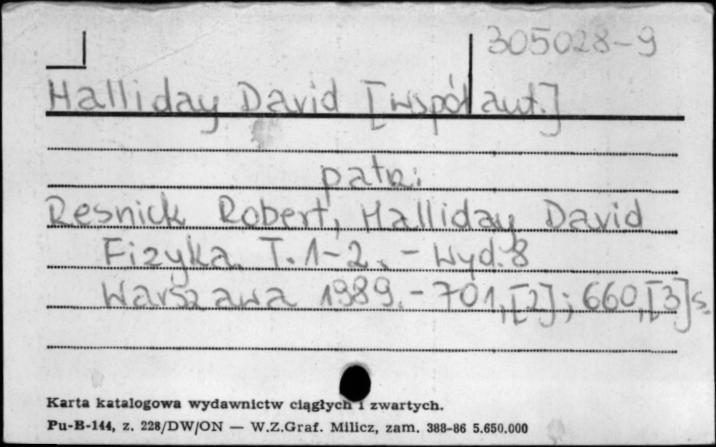 305028-9
Halliday David [współaut.]
patrz:
Resnick Robert, Halliday David
Fizyka. T. 1-2. - Wyd. 8
Warszawa 1989. - 701, [2] ; 660, [3] s.
Karta katalogowa wydawnictw ciągłych i zwartych.
Pu-B-144, z. 228/DW/ON — W.Z.Graf. Milicz, zam. 388-86 5.650.000